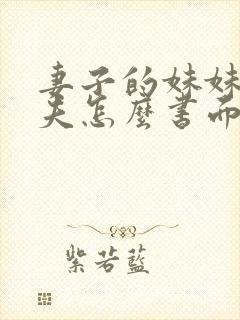 妻子的妹妹
夫怎麼書面
紫若藍